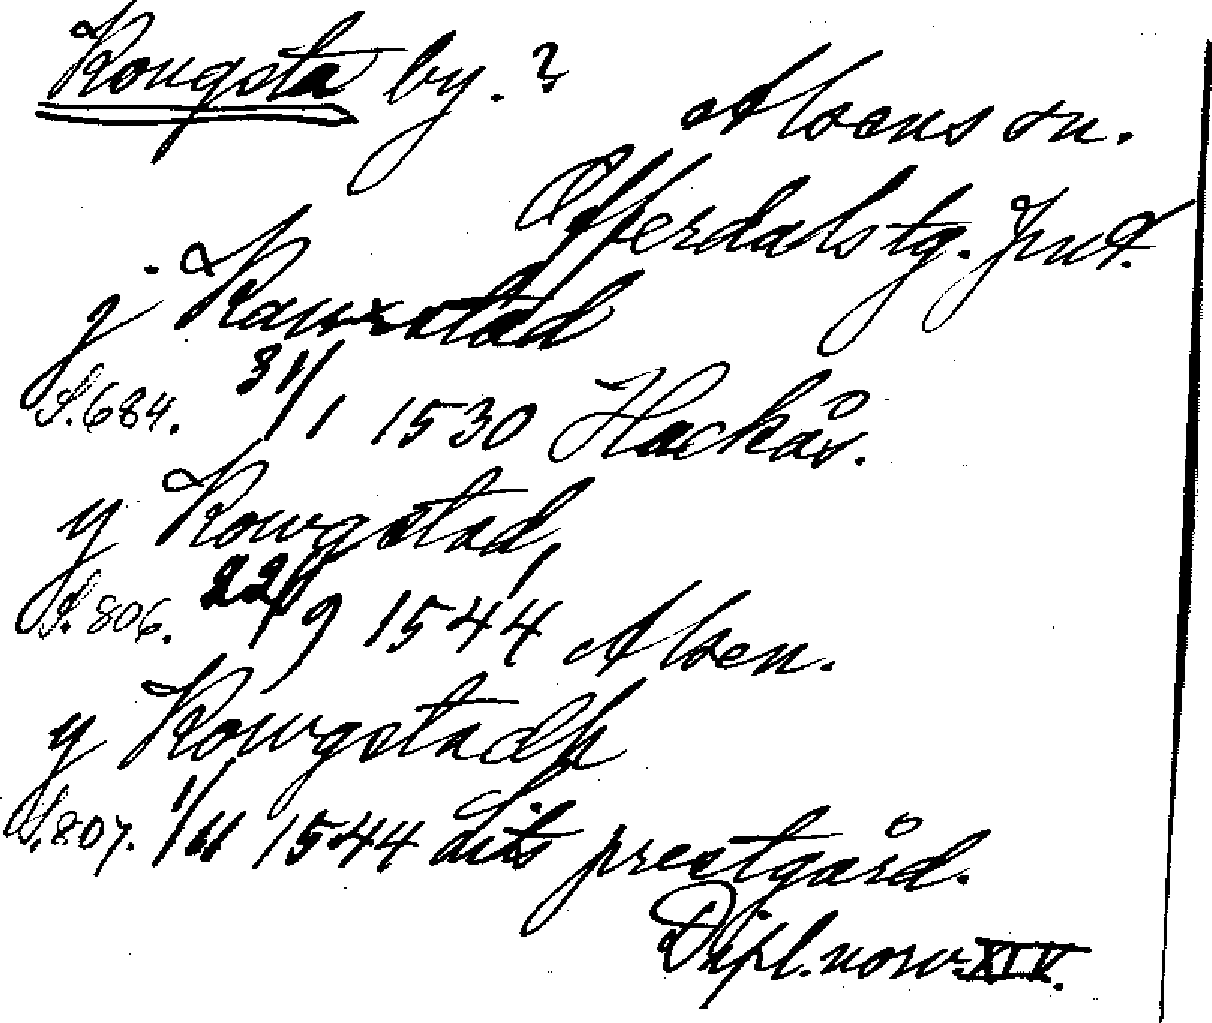 Kougsta by. ?
Alsens sn.
Offerdals tg. Jmt.
j Kauxstad
S. 684. 31/1 1530 Hackås.
y Kowgstad
S. 806. 22/9 1544 Alsen.
y Kowgstadh
S. 807. 1/11 1544 Lits prestgård.
Dipl. norv. XIV.